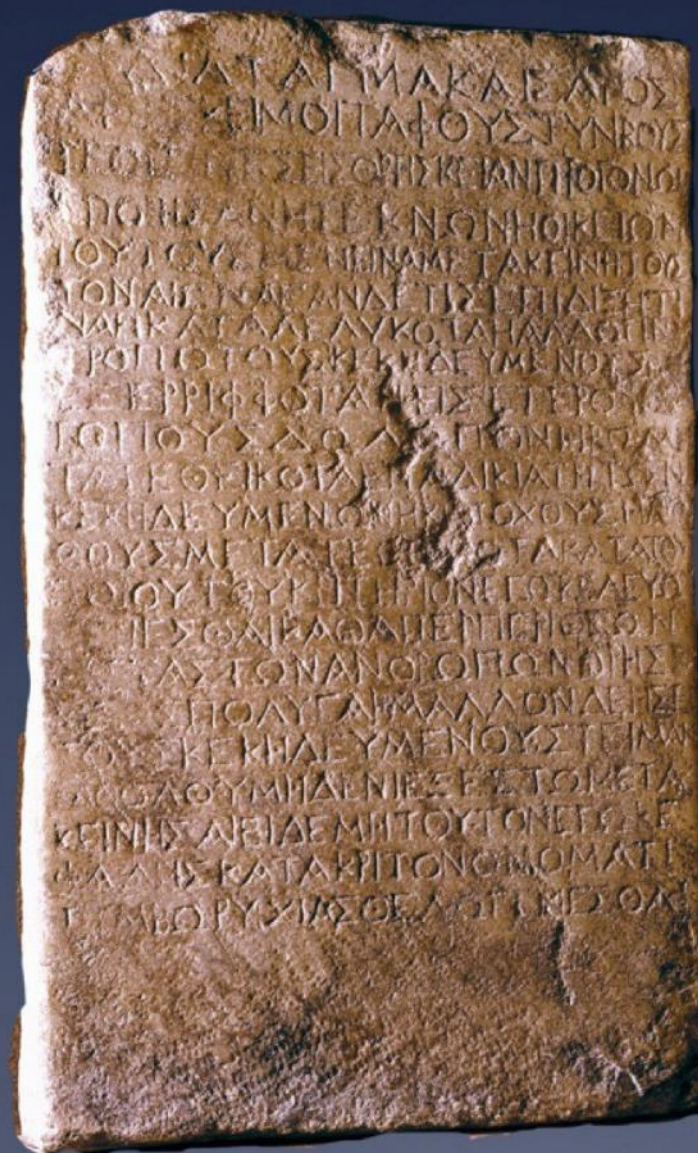 ΔΙΑΤΑΓΜΑ ΚΑΙΣΑΡΟΣ
ΜΟΙ ΤΑΦΟΥΣ ΤΥΝΒΟΥΣ
ΕΙΣ ΘΡΗΣΚΕΙΑΝ ΠΡΟΓΟΝΩΝ
ΕΠΟΙΗΣΑΝ Η ΤΕΚΝΩΝ Η ΟΙΚΕΙΩΝ
ΤΟΥΤΟΥΣ ΜΕΝΕΙΝ ΑΜΕΤΑΚΕΙΝΗΤΟΥΣ
ΤΟΝ ΑΙΩΝΑ ΕΑΝ ΔΕ ΤΙΣ ΕΠΙΔΙΞΗ ΤΙ
ΝΑ Η ΚΑΤΑΛΕΛΥΚΟΤΑ Η ΑΛΛΩ ΤΙΝΙ
ΤΡΟΠΩ ΤΟΥΣ ΚΕΚΗΔΕΥΜΕΝΟΥΣ
ΕΞΕΡΡΙΦΦΟΤΑ Η ΕΙΣ ΕΤΕΡΟΥΣ
ΤΟΠΟΥΣ ΔΩΛΩ ΠΟΝΗΡΩ ΜΕ
ΤΑΤΕΘΙΚΟΤΑ ΕΠ ΑΔΙΚΙΑ ΤΗ ΤΩΝ
ΚΕΚΗΔΕΥΜΕΝΩΝ Η ΚΑΤΟΧΟΥΣ Η ΛΙ
ΘΟΥΣ ΜΕΤΑΤΕΘΙΚΟΤΑ ΚΑΤΑ ΤΟΥ
ΤΟΙΟΥΤΟΥ ΚΡΙΤΗΡΙΟΝ ΕΓΩ ΚΕΛΕΥΩ
ΓΕΝΕΣΘΑΙ ΚΑΘΑΠΕΡ ΠΕΡΙ ΘΕΩΝ
ΤΑΣ ΤΩΝ ΑΝΘΡΩΠΩΝ ΘΡΗΣ
ΠΟΛΥ ΓΑΡ ΜΑΛΛΟΝ ΔΕΗΣΕΙ
ΤΟΥΣ ΚΕΚΗΔΕΥΜΕΝΟΥΣ ΤΕΙΜΑΝ
ΚΑΘΟΛΟΥ ΜΗΔΕΝΙ ΕΞΕΣΤΩ ΜΕΤΑ
ΚΕΙΝΗΣΑΙ ΕΙ ΔΕ ΜΗ ΤΟΥΤΟΝ ΕΓΩ ΚΕ
ΦΑΛΗΣ ΚΑΤΑΚΡΙΤΟΝ ΟΝΟΜΑΤΙ
ΤΥΜΒΩΡΥΧΙΑΣ ΘΕΛΩ ΓΕΝΕΣΘΑΙ